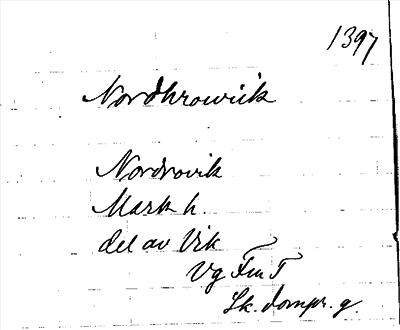 1397
Nordhrowiik
Nordrovik
Mark h.
del av Vik
Vg Fm T
Sk. dompr. g.